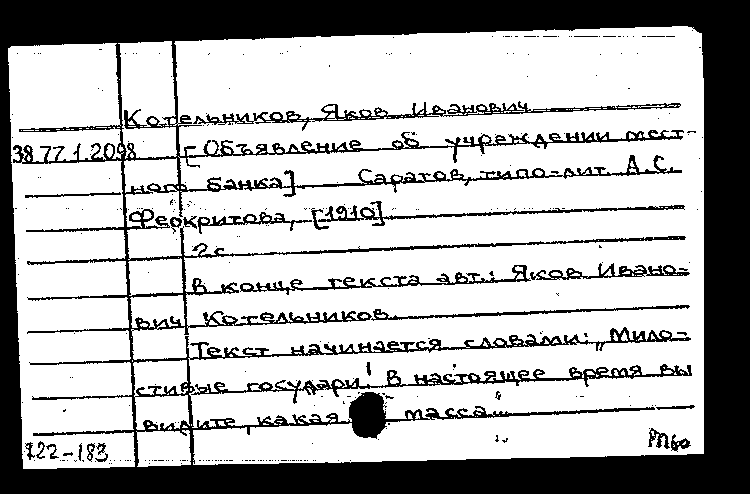 Котельников, Яков Иванович
38.77.1.2098 [Объявление об учреждении мест-
ного банка]. Саратов, типо-лит. А.С.
Феокритова, [1910].
2 с.
В конце текста авт.: Яков Ивано-
вич Котельников.
Текст начинается словами: „Мило-
стивые государи! В настоящее время вы
видите, какая масса..."
122-183